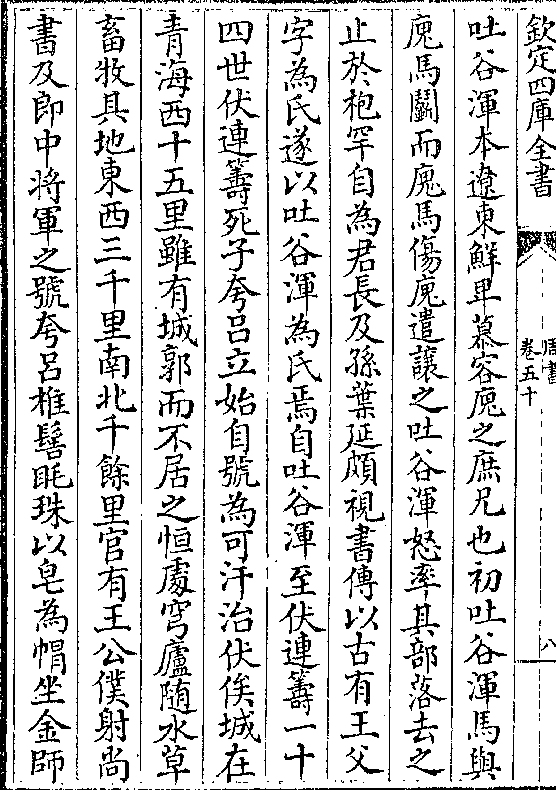 欽定四庫全書
周書
卷五十
八
吐谷渾本遼東鮮卑慕容廆之庶兄也初吐谷渾馬與
廆馬鬭而廆馬傷廆遣讓之吐谷渾怒率其部落去之
止於枹罕自為君長及孫葉延頗視書傳以古有王父
字為氏遂以吐谷渾為氏焉自吐谷渾至伏連籌一十
四世伏連籌死子夸呂立始自號為可汗治伏俟城在
青海西十五里雖有城郭而不居之恒處穹廬隨水草
畜牧其地東西三千里南北千餘里官有王公僕射尚
書及郎中將軍之號夸呂椎髻毦珠以皂為帽坐金師